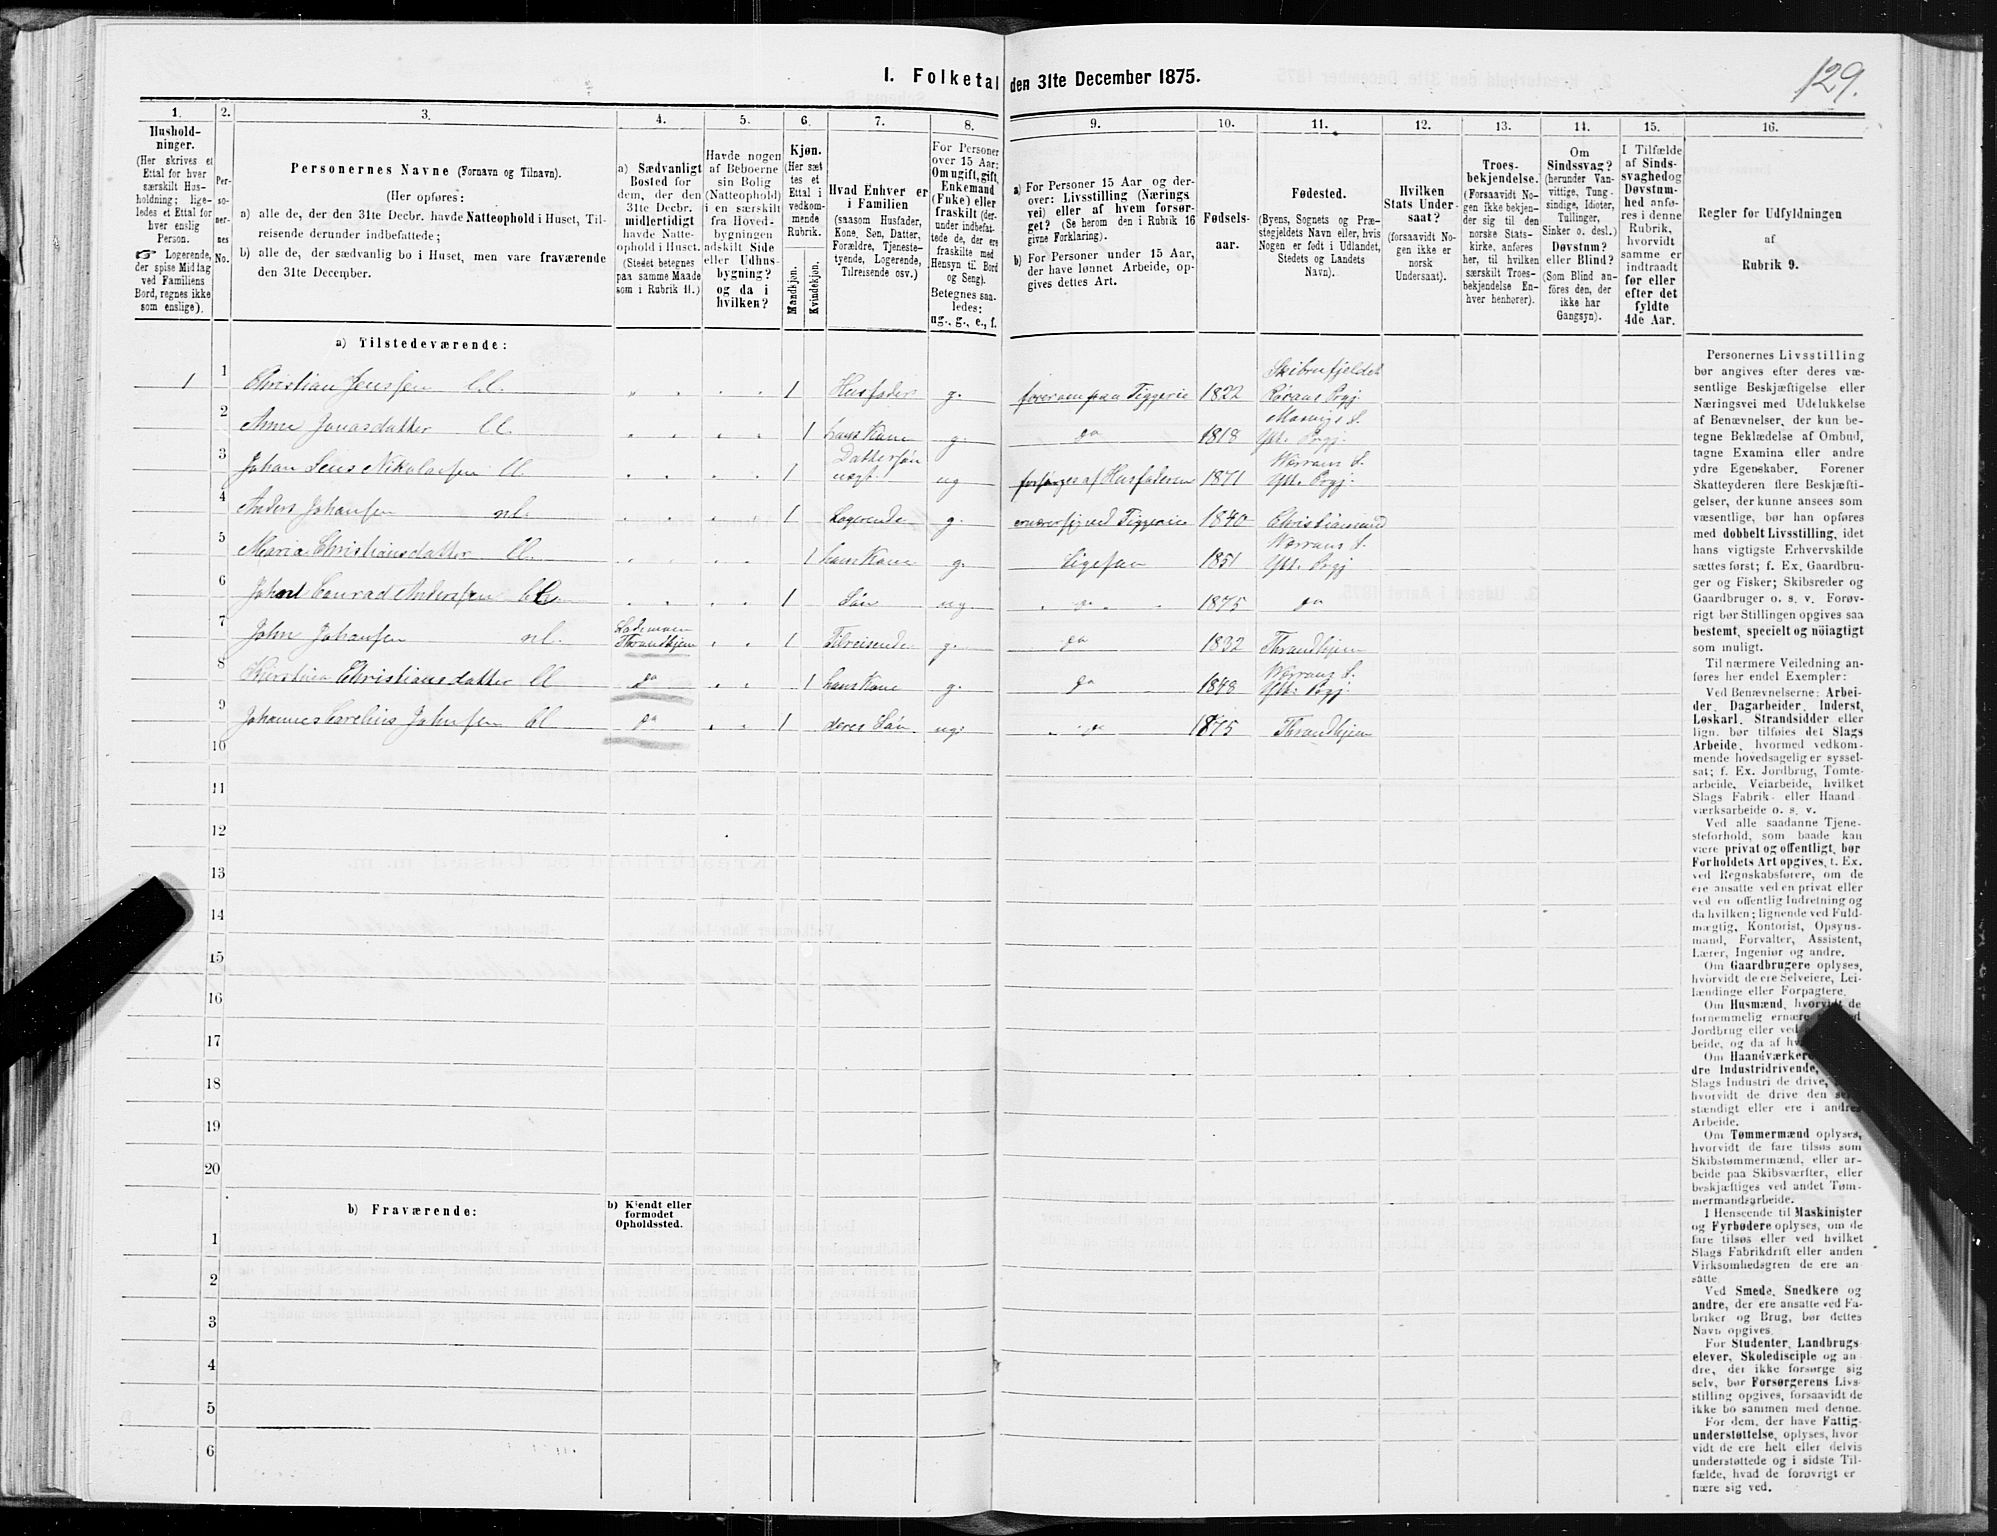 1. Folketal den 31te December 1875.
129.
1.
Hushold-
ninger.
(Her skrives et
Ettal for hver
særskilt Hus-
holdning; lige-
ledes et Ettal for
hver enslig
Person.
☞ Logerende,
der spise Middag
ved Familiens
Bord, regnes ikke
som enslige).
2.
Per-
so-
ner-
nes
No.
3.
Personernes Navne (Fornavn og Tilnavn).
(Her opføres:
a) alle de, der den 31te Decbr. havde Natteophold i Huset, Til-
reisende derunder indbefattede;
b) alle de, der sædvanlig bo i Huset, men vare fraværende
den 31te December.
4.
a) Sædvanligt
Bosted for
dem, der den
31te Decbr.
midlertidigt
havde Natte-
ophold i Huset.
(Stedet betegnes
paa samme Maade
som i Rubrik 11.)
5.
Havde nogen
af Beboerne
sin Bolig
(Natteophold)
i en særskilt
fra Hoved-
bygningen
adskilt Side
eller Udhus-
bygning?
og da i
hvilken?
6.
Kjøn.
(Her sæt
tes et
Ettal i
vedkom-
mende
Rubrik.
Mandkjøn.
Kvindekjøn.
7.
Hvad Enhver er
i Familien
(saasom Husfader,
Kone, Søn, Datter,
Forældre, Tjeneste-
tyende, Logerende,
Tilreisende osv.)
8.
For Personer
over 15 Aar:
Om ugift, gift,
Enkemand
(Enke) eller
fraskilt (der-
under indbefat-
tede de, der ere
fraskilte med
Hensyn til Bord
og Seng).
Betegnes saa-
ledes:
ug., g., e., f.
9.
a) For Personer 15 Aar og der-
over: Livsstilling (Nærings
vei) eller af hvem forsør-
get? (Se herom den i Rubrik 16
givne Forklaring).
b) For Personer under 15 Aar,
der have lønnet Arbeide, op-
gives dettes Art.
10.
Fødsels-
aar.
11.
Fødested.
(Byens, Sognets og Præ-
stegjeldets Navn eller, hvis
Nogen er født i Udlandet,
Stedets og Landets
Navn).
12.
Hvilken
Stats Under-
saat?
(forsaavidt No-
gen ikke er
norsk
Undersaat).
13.
Troes-
bekjendelse.
(Forsaavidt No-
gen ikke bekjen-
der sig til den
norske Stats-
kirke, anføres
her, til hvilken
særskilt Troes-
bekjendelse En-
hver henhører).
14.
Om
Sindssvag?
(herunder Van-
vittige, Tung-
sindige, Idioter,
Tullinger,
Sinker o. desl.)
Døvstum?
eller Blind?
(Som Blind an-
føres den, der
ikke har
Gangsyn).
15.
I Tilfælde
af Sinds-
svaghed og
Døvstum-
hed anfø-
res i denne
Rubrik,
hvorvidt
samme er
indtraadt
før eller
efter det
fyldte
4de Aar.
16.
Regler for Udfyldningen
af
Rubrik 9.
a) Tilstedeværende:
1 1 Christian Jenssen l.l. 1 Husfader g. 1822 Skibnefjeldet Røraas Prgj.
2 Anne Jonasdatter l.l. 1 hans Kone g. do 1818 Mosvigs S. Yt. Prgj.
3 Johan Jens Nikolaisen ll. 1 Dattersøn ug forsørges af Husfaderen 1871 Værrans S. Yt. Prgj.
4 Anders Johansen nl. 1 Logerende g. 1840 Christiansund
5 Maria Christiansdatter ll. 1 hans Kone g. Ligesaa 1851 Værrans S. Yt. Prgj
6 Johan Conrad Anderssen 1 Søn ug. do 1875 do
7 John Johansen nl. Lademoen Throndhjem 1 Tilreisende g. do 1832 Throndhjem
8 Kirstina Christiansdatter ll do 1 hans Kone g. do 1848 Værrans S. Yt. Prgj.
9 Johannes Corelius Johnsen ll do 1 deres Søn ug: do 1875 Throndhjem
10
11
12
13
14
15
16
17
18
19
20
b) Fraværende:
b) Kjendt eller
formodet
Opholdssted.
1
2
3
4
5
6
Personernes Livsstilling
bør angives efter deres væ-
sentlige Beskjæftigelse eller
Næringsvei med Udelukkelse
af Benævnelser, der kun be-
tegne Beklædelse af Ombud,
tagne Examina eller andre
ydre Egenskaber. Forener
Skatteyderen flere Beskjæfti-
gelser, der kunne ansees som
væsentlige, bør han opføres
med dobbelt Livsstilling, idet
hans vigtigste Erhvervskilde
sættes først; f. Ex. Gaardbru-
ger og Fisker; Skibsreder og
Gaardbruger o. s. v. Forøv-
rigt bør Stillingen opgives saa
bestemt, specielt og nöiagtigt
som muligt.
Til nærmere Veiledning an-
føres her endel Exempler:
Ved Benævnelserne: Arbei-
der, Dagarbeider, Inderst,
Løskarl, Strandsidder eller
lign. bør tilføies det Slags
Arbeide, hvormed vedkom-
mende hovedsagelig er syssel-
sat; f. Ex. Jordbrug, Tomte-
arbeide, Veiarbeide, hvilket
Slags Fabrik- eller Haand
værksarbeide o. s. v.
Ved alle saadanne Tjene-
steforhold, som baade kan
være privat og offentligt, bør
Forholdets Art opgives, t. Ex.
ved Regnskabsførere, om de
ere ansatte ved en privat eller
ved en offentlig Indretning og
da hvilken; lignende ved Fuld-
mægtig, Kontorist, Opsyns-
mand, Forvalter, Assistent,
Lærer, Ingeniør og andre.
Om Gaardbrugere oplyses,
hvorvidt de ere Selveiere, Lei-
lændinge eller Forpagtere.
Om Husmænd, hvorvidt de
fornemmelig ernære
Jordbrug eller ved
beide, og da af
Om Haandværkere
dre Industridrivende,
Slags Industri de drive,
hvorvidt de drive den
stændigt eller ere i andres
Arbeide.
Om Tømmermænd oplyses,
hvorvidt de fare tilsøs som
Skibstømmermænd, eller ar-
beide paa Skibsværfter, eller
beskjæftiges ved andet Tøm-
mermandsarbeide.
I Henseende til Maskinister
og Fyrbødere oplyses, om de
fare tilsøs eller ved hvilket
Slags Fabrikdrift eller anden
Virksomhedsgren de ere an-
satte
Ved Smede, Snedkere og
andre, der ere ansatte ved Fa-
briker og Brug, bør dettes
Navn opgives.
For Studenter, Landbrugs-
elever, Skoledisciple og an-
dre, der ikke forsørge sig
selv, bør Forsørgerens Livs-
stilling opgives, forsaavidt de
ikke bo sammen med denne.
For dem, der have Fattig-
understøttelse, oplyses, hvor
vidt de ere helt eller delvis
understøttede og i sidste Til-
fælde, hvad de forøvrigt er
nære sig ved.